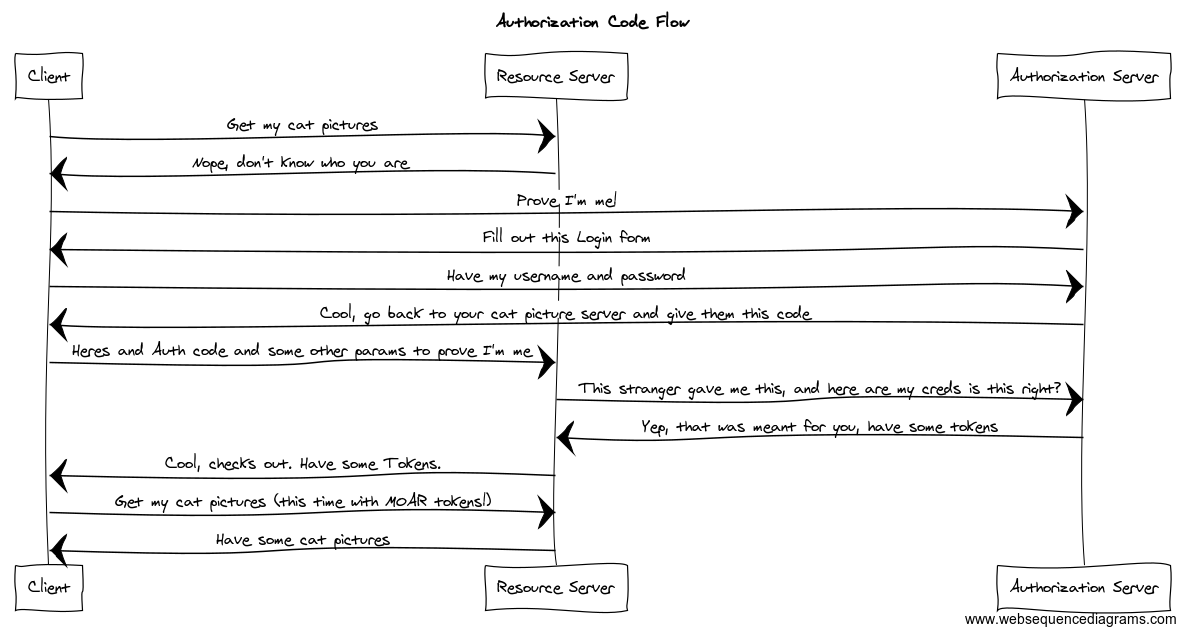 Authorization Code Flow
Client
Resource Server
Authorization Server
Get my cat pictures
Nope, don't know who you are
Prove I'm me!
Fill out this Login form
Have my username and password
Cool, go back to your cat picture server and give them this code
Heres and Auth code and some other params to prove I'm me
This stranger gave me this, and here are my creds is this right?
Yep, that was meant for you, have some tokens
Cool, checks out. Have some Tokens.
Get my cat pictures (this time with MOAR tokens!)
Have some cat pictures
Client
Resource Server
Authorization Server
www.websequencediagrams.com